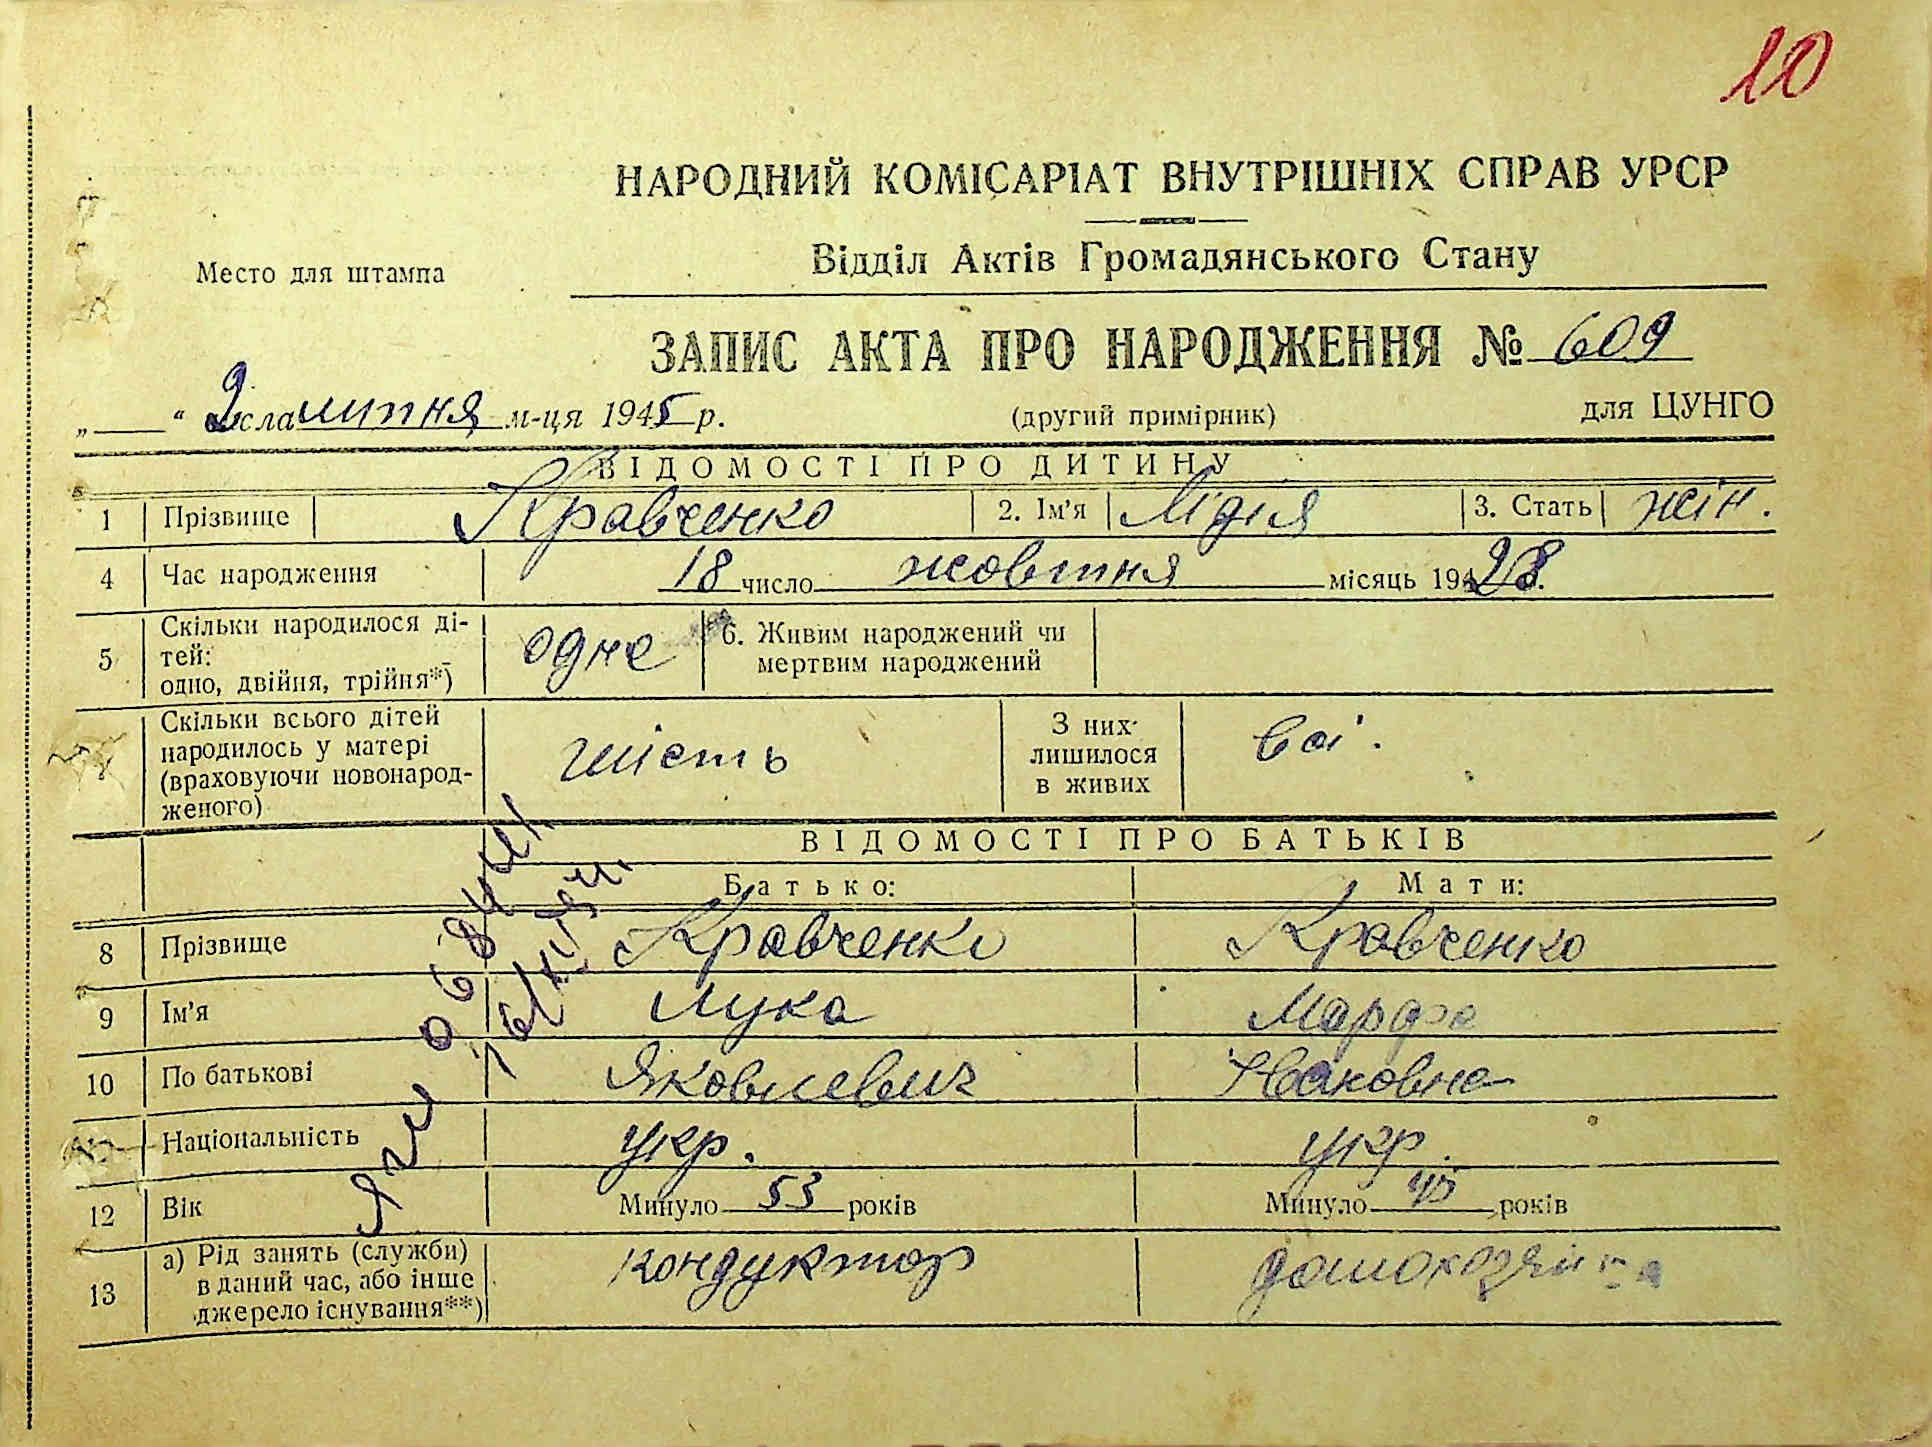 10
НАРОДНИЙ КОМІСАРІАТ ВНУТРІШНІХ СПРАВ УРСР
Відділ Актів Громадянського Стану
Место для штампа
ЗАПИС АКТА ПРО НАРОДЖЕННЯ № 609
„ “ 2 липня м-ця 1945 р. (другий примірник) для ЦУНГО
ВІДОМОСТІ ПРО ДИТИНУ
1 Прізвище Кравченко 2. Ім'я Лідія 3. Стать жін.
4 Час народження 18 число жовтня місяць 1928
5 Скільки народилося ді-
тей:
одно, двійня, трійня*) одне 6. Живим народжений чи
мертвим народжений
Скільки всього дітей
народилось у матері
(враховуючи новонарод-
женого) шість З них
лишилося
в живих всі.
ВІДОМОСТІ ПРО БАТЬКІВ
Батько: Мати:
8 Прізвище Кравченко Кравченко
9 Ім'я Лука Марфа
10 По батькові Яковлевич
Національність укр. укр.
12 Вік Минуло 53 років Минуло років
13 а) Рід занять (служби)
в даний час, або інше
джерело існування**) кондуктор домохозяйка